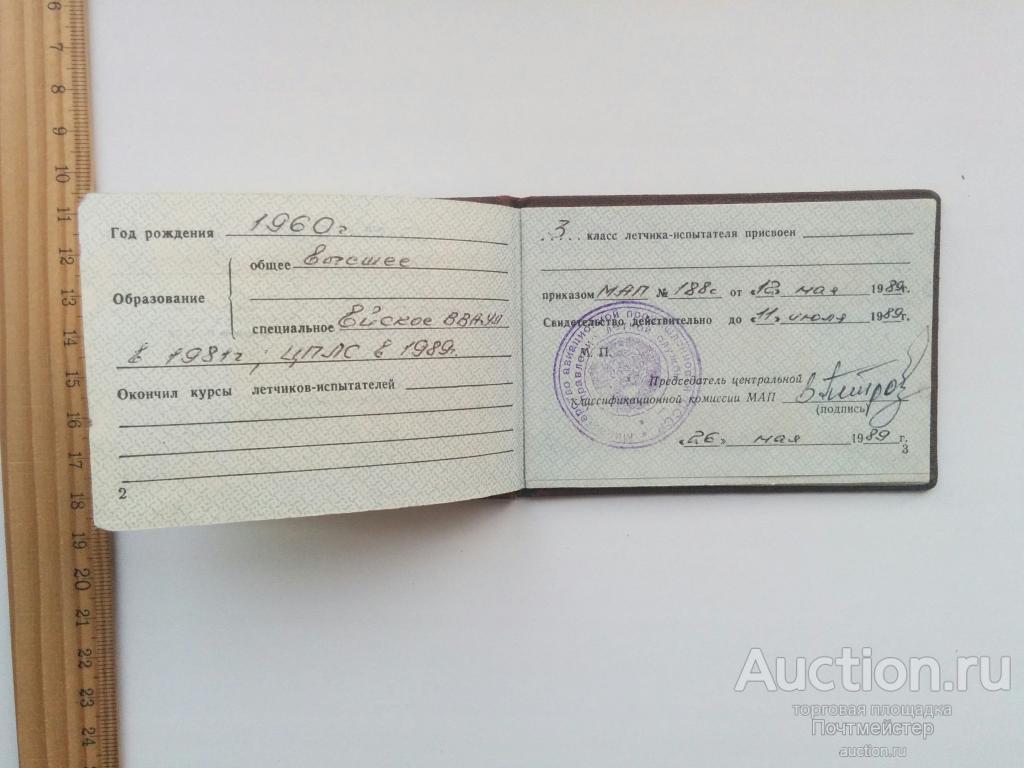 Год рождения 1960г
общее Высшее
Образование
специальное Ейское ВВАУЛ
в 1981г; ЦПЛС в 1989г.
Окончил курсы летчиков-испытателей
2
3 класс летчика-испытателя присвоен
приказом МАП № 188с от «12» мая 1989г.
Свидетельство действительно до «11» июля 1989г.
М. П.
Председатель центральной
классификационной комиссии МАП
(подпись)
«26» мая 1989 г.
3
6
7
8
9
10
11
12
13
14
15
16
17
18
19
20
21
22
23
24
Auction.ru
торговая площадка
Почтмейстер
auction.ru